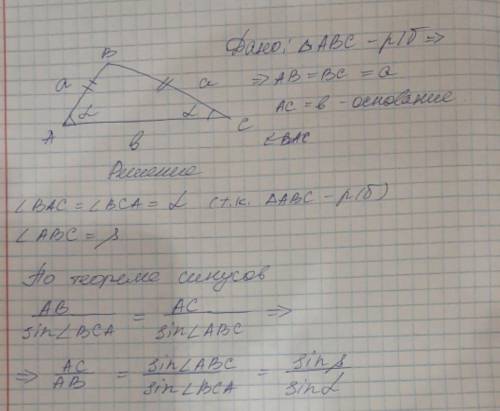 Дано: △ABC - р/б ⇒
⇒ AB = BC = a
AC = в - основание
∠BAC
B
a
a
A
α
α
C
в
Решение
∠BAC = ∠BCA = α (т.к. △ABC - р/б)
∠ABC = β
По теореме синусов
AB / sin∠BCA = AC / sin∠ABC ⇒
⇒ AC / AB = sin∠ABC / sin∠BCA = sinβ / sinα